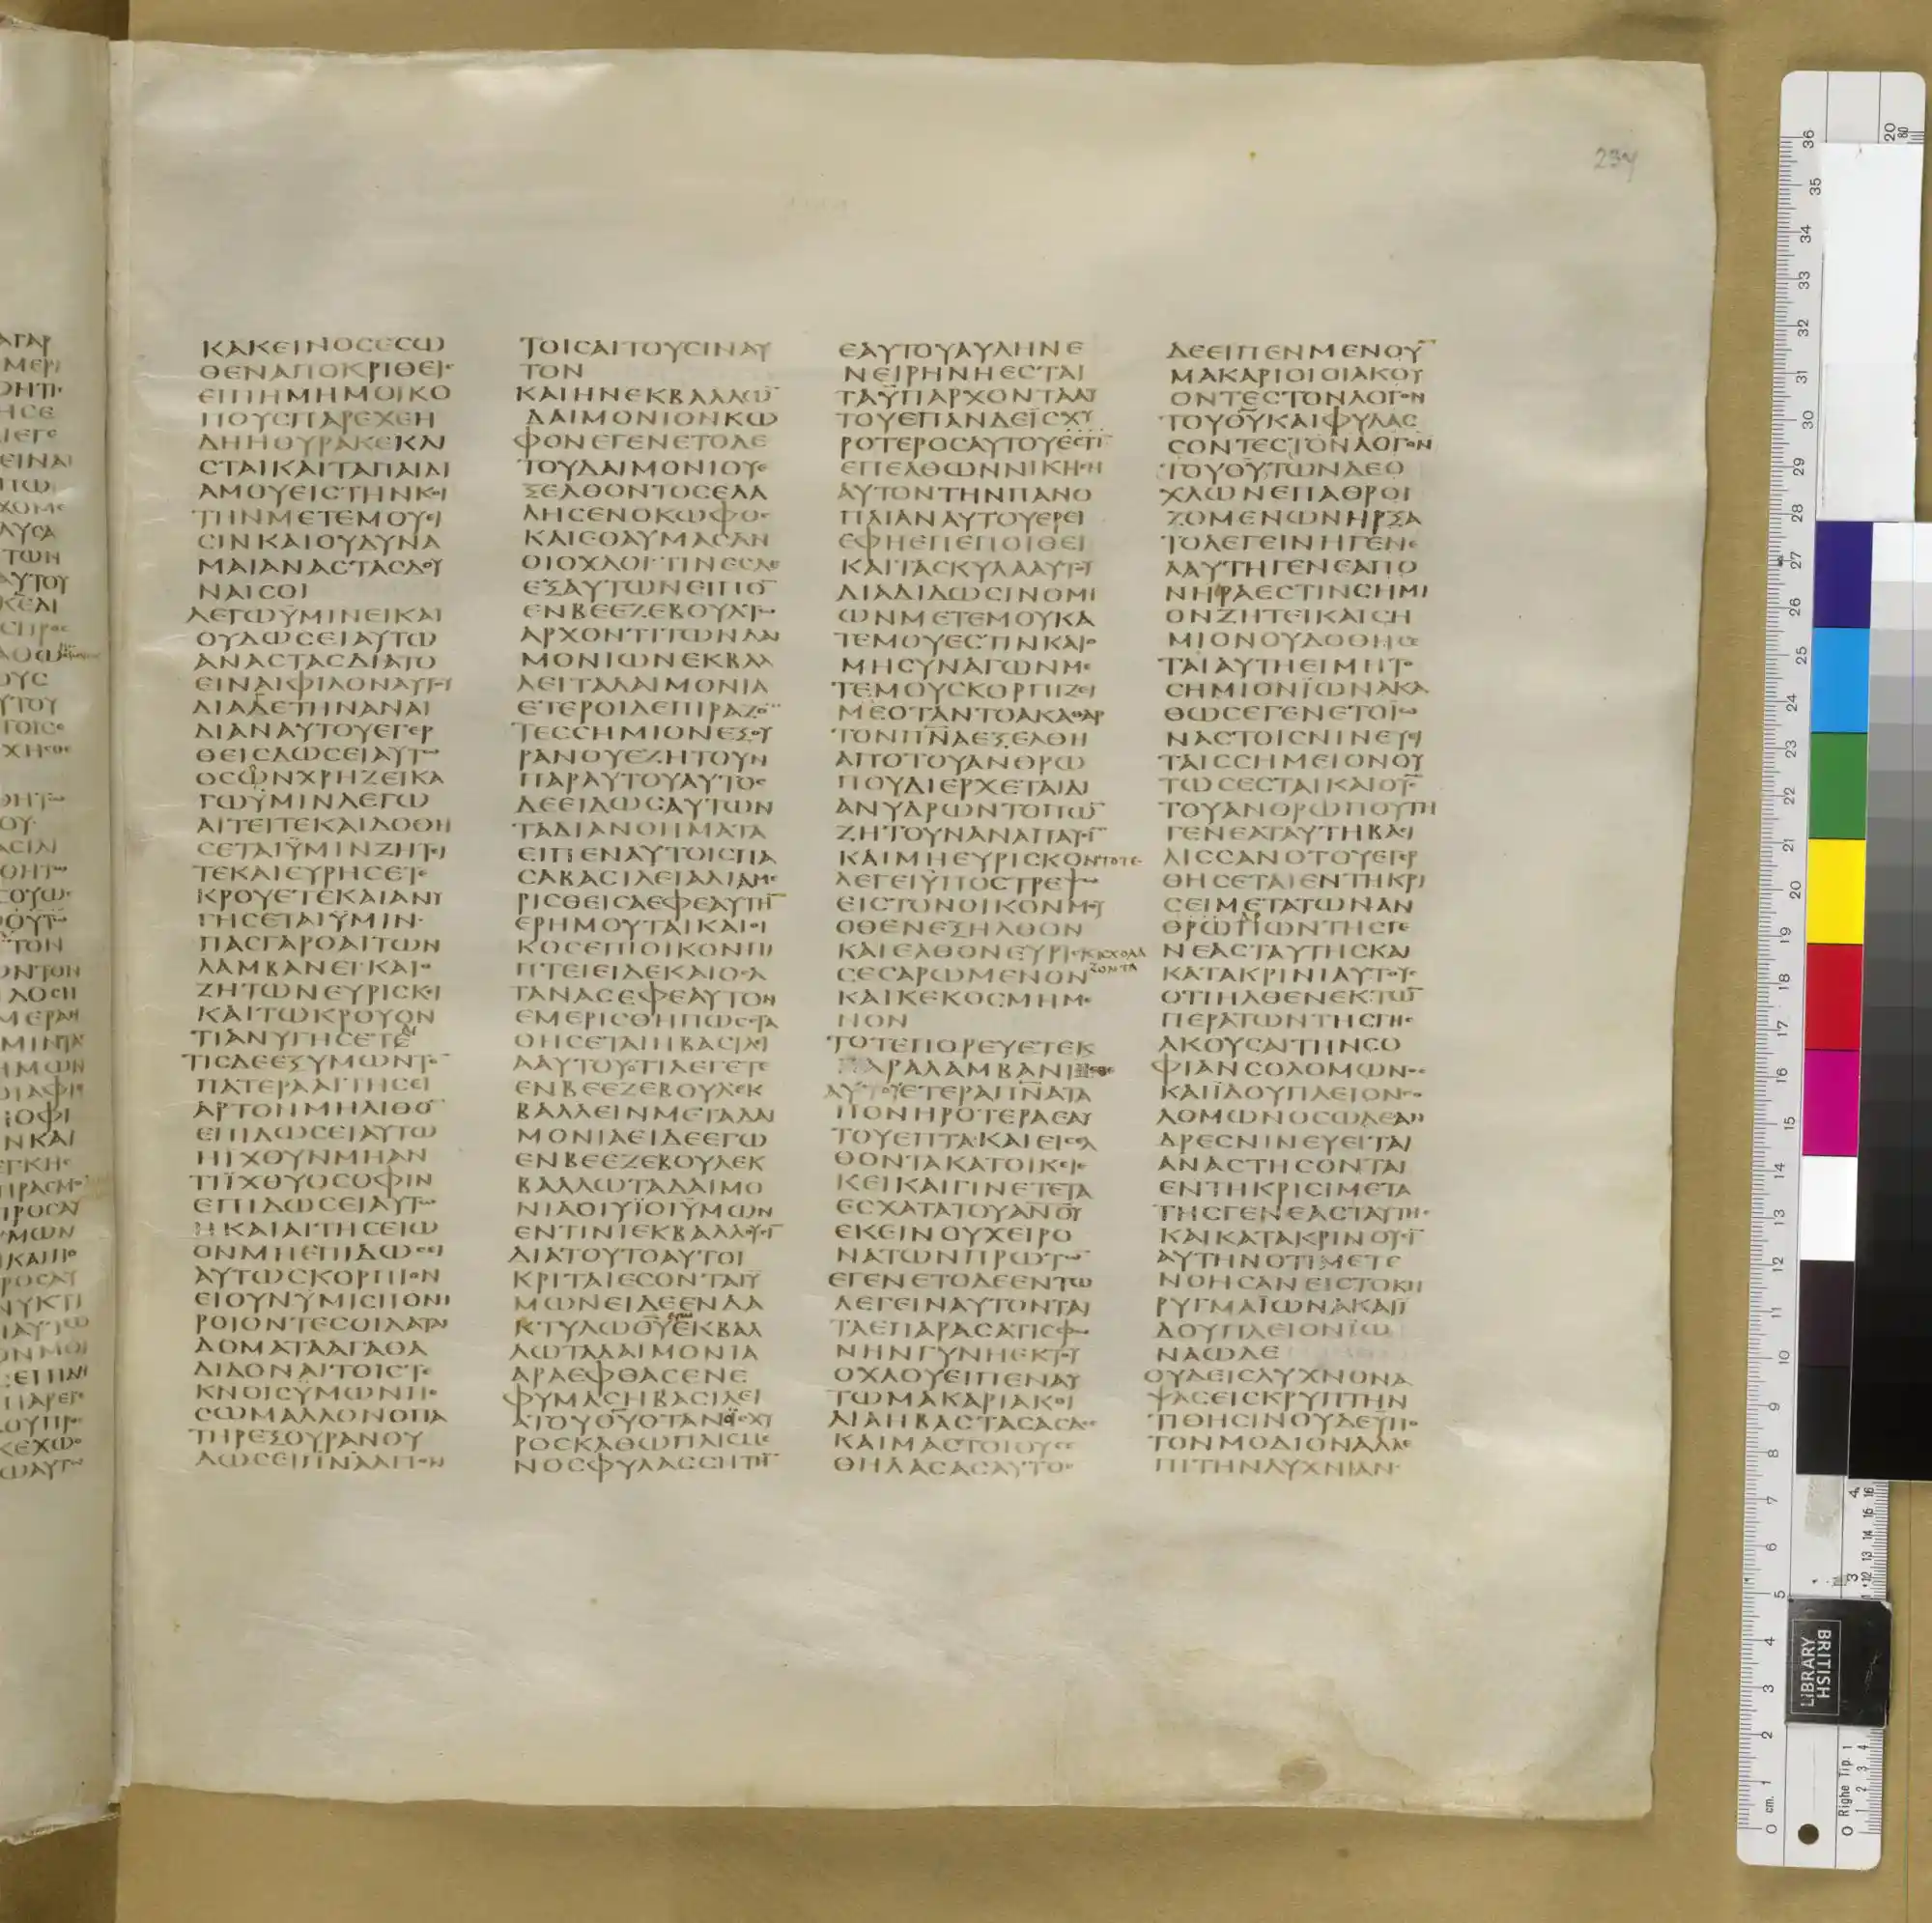 234
ΚΑΚΕΙΝΟϹΕϹΩ
ΘΕΝΑΠΟΚΡΙΘΕΙϹ
ΕΙΠΗΜΗΜΟΙΚΟ
ΠΟΥϹΠΑΡΕΧΕΗ
ΔΗΗΘΥΡΑΚΕΚΛΙ
ϹΤΑΙΚΑΙΤΑΠΑΙΔΙ
ΑΜΟΥΕΙϹΤΗΝΚΟΙ
ΤΗΝΜΕΤΕΜΟΥΕΙ
ϹΙΝΚΑΙΟΥΔΥΝΑ
ΜΑΙΑΝΑϹΤΑϹΔΟΥ
ΝΑΙϹΟΙ
ΛΕΓΩΫΜΙΝΕΙΚΑΙ
ΟΥΔΩϹΕΙΑΥΤΩ
ΑΝΑϹΤΑϹΔΙΑΤΟ
ΕΙΝΑΙΦΙΛΟΝΑΥΤΟΥ
ΔΙΑΔΕΤΗΝΑΝΑΙ
ΔΙΑΝΑΥΤΟΥΕΓΕΡ
ΘΕΙϹΔΩϹΕΙΑΥΤΩ
ΟϹΩΝΧΡΗΖΕΙΚΑ
ΓΩΫΜΙΝΛΕΓΩ
ΑΙΤΕΙΤΕΚΑΙΔΟΘΗ
ϹΕΤΑΙΫΜΙΝΖΗΤΕΙ
ΤΕΚΑΙΕΥΡΗϹΕΤΕ
ΚΡΟΥΕΤΕΚΑΙΑΝΥ
ΓΗϹΕΤΑΙΫΜΙΝ·
ΠΑϹΓΑΡΟΑΙΤΩΝ
ΛΑΜΒΑΝΕΙ·ΚΑΙΟ
ΖΗΤΩΝΕΥΡΙϹΚΕΙ
ΚΑΙΤΩΚΡΟΥΟΝ
ΤΙΑΝΥΓΗϹΕΤΕ
ΤΙϹΔΕΕΞΥΜΩΝΤΟ̅
ΠΑΤΕΡΑΑΙΤΗϹΕΙ
ΑΡΤΟΝΜΗΛΙΘΟ̅
ΕΠΙΔΩϹΕΙΑΥΤΩ
ΗΙΧΘΥΝΜΗΑΝ
ΤΙΪΧΘΥΟϹΟΦΙΝ
ΕΠΙΔΩϹΕΙΑΥΤΩ
ΗΚΑΙΑΙΤΗϹΕΙΩ
ΟΝΜΗΕΠΙΔΩϹΕΙ
ΑΥΤΩϹΚΟΡΠΙΟΝ
ΕΙΟΥΝΫΜΙϹΠΟΝΗ
ΡΟΙΟΝΤΕϹΟΙΔΑΤΑΙ
ΔΟΜΑΤΑΑΓΑΘΑ
ΔΙΔΟΝΑΙΤΟΙϹΤΕ
ΚΝΟΙϹΫΜΩΝΠΟ
ϹΩΜΑΛΛΟΝΟΠΑ
ΤΗΡΕΞΟΥΡΑΝΟΥ
ΔΩϹΕΙΠΝ̅ΑΑΓΙΟΝ
ΤΟΙϹΑΙΤΟΥϹΙΝΑΥ
ΤΟΝ
ΚΑΙΗΝΕΚΒΑΛΛΩ̅
ΔΑΙΜΟΝΙΟΝΚΩ
ΦΟΝΕΓΕΝΕΤΟΔΕ
ΤΟΥΔΑΙΜΟΝΙΟΥΕ
ΞΕΛΘΟΝΤΟϹΕΛΑ
ΛΗϹΕΝΟΚΩΦΟϹ
ΚΑΙΕΘΑΥΜΑϹΑΝ
ΟΙΟΧΛΟΙ·ΤΙΝΕϹΔΕ
ΕΞΑΥΤΩΝΕΙΠΟ̅
ΕΝΒΕΕΖΕΒΟΥΛΤΩ
ΑΡΧΟΝΤΙΤΩΝΔΑΙ
ΜΟΝΙΩΝΕΚΒΑΛ
ΛΕΙΤΑΔΑΙΜΟΝΙΑ
ΕΤΕΡΟΙΔΕΠΙΡΑΖΟ̅
ΤΕϹϹΗΜΙΟΝΕΞΟΥ
ΡΑΝΟΥΕΖΗΤΟΥΝ
ΠΑΡΑΥΤΟΥΑΥΤΟϹ
ΔΕΕΙΔΩϹΑΥΤΩΝ
ΤΑΔΙΑΝΟΗΜΑΤΑ
ΕΙΠΕΝΑΥΤΟΙϹΠΑ
ϹΑΒΑϹΙΛΕΙΑΔΙΑΜΕ
ΡΙϹΘΕΙϹΑΕΦΕΑΥΤΗ̅
ΕΡΗΜΟΥΤΑΙΚΑΙΟΙ
ΚΟϹΕΠΙΟΙΚΟΝΠΙ
ΠΤΕΙΕΙΔΕΚΑΙΟϹΑ
ΤΑΝΑϹΕΦΕΑΥΤΟΝ
ΕΜΕΡΙϹΘΗΠΩϹϹΤΑ
ΘΗϹΕΤΑΙΗΒΑϹΙΛΕΙ
ΑΑΥΤΟΥΟΤΙΛΕΓΕΤΕ
ΕΝΒΕΕΖΕΒΟΥΛΕΚ
ΒΑΛΛΕΙΝΜΕΤΑΔΑΙ
ΜΟΝΙΑΕΙΔΕΕΓΩ
ΕΝΒΕΕΖΕΒΟΥΛΕΚ
ΒΑΛΛΩΤΑΔΑΙΜΟ
ΝΙΑΟΙΥΪΟΙΫΜΩΝ
ΕΝΤΙΝΙΕΚΒΑΛΛΟΥϹΙ̅
ΔΙΑΤΟΥΤΟΑΥΤΟΙ
ΚΡΙΤΑΙΕϹΟΝΤΑΙΫ
ΜΩΝΕΙΔΕΕΝΔΑ
ΚΤΥΛΩΘ̅Υ̅ΕΓΩΕΚΒΑΛ
ΛΩΤΑΔΑΙΜΟΝΙΑ
ΑΡΑΕΦΘΑϹΕΝΕ
ΦΥΜΑϹΗΒΑϹΙΛΕΙ
ΑΤΟΥΘ̅Υ̅ΟΤΑΝΟΪϹΧΥ
ΡΟϹΚΑΘΩΠΛΙϹΜΕ
ΝΟϹΦΥΛΑϹϹΗΤΗ̅
ΕΑΥΤΟΥΑΥΛΗΝΕ
ΝΕΙΡΗΝΗΕϹΤΑΙ
ΤΑΫΠΑΡΧΟΝΤΑΑΥ
ΤΟΥΕΠΑΝΔΕΪϹΧΥ
ΡΟΤΕΡΟϹΑΥΤΟΥΕϹΤΙ
ΕΠΕΛΘΩΝΝΙΚΗϹΗ
ΑΥΤΟΝΤΗΝΠΑΝΟ
ΠΛΙΑΝΑΥΤΟΥΕΡΕΙ
ΕΦΗΕΠΕΠΟΙΘΕΙ
ΚΑΙΤΑϹΚΥΛΑΑΥΤΟΥ
ΔΙΑΔΙΔΩϹΙΝΟΜΙ
ΩΝΜΕΤΕΜΟΥΚΑ
ΤΕΜΟΥΕϹΤΙΝΚΑΙΟ
ΜΗϹΥΝΑΓΩΝΜΕ
ΤΕΜΟΥϹΚΟΡΠΙΖΕΙ
ΜΕΟΤΑΝΤΟΑΚΑΘΑΡ
ΤΟΝΠΝ̅ΑΕΞΕΛΘΗ
ΑΠΟΤΟΥΑΝΘΡΩ
ΠΟΥΔΙΕΡΧΕΤΑΙΔΙ
ΑΝΥΔΡΩΝΤΟΠΩ̅
ΖΗΤΟΥΝΑΝΑΠΑΥϹΙ̅
ΚΑΙΜΗΕΥΡΙϹΚΟΝΤΟΤΕ
ΛΕΓΕΙΫΠΟϹΤΡΕΨΩ
ΕΙϹΤΟΝΟΙΚΟΝΜΟΥ
ΟΘΕΝΕΞΗΛΘΟΝ
ΚΑΙΕΛΘΟΝΕΥΡΙϹΚΙϹΧΟΛΑ
ΖΟΝΤΑ
ϹΕϹΑΡΩΜΕΝΟΝ
ΚΑΙΚΕΚΟϹΜΗΜΕ
ΝΟΝ
ΤΟΤΕΠΟΡΕΥΕΤΕΚ
ΠΑΡΑΛΑΜΒΑΝΙ
ΑΥΤΟΥΕΤΕΡΑΠΝ̅ΑΤΑ
ΠΟΝΗΡΟΤΕΡΑΕΑΥ
ΤΟΥΕΠΤΑ·ΚΑΙΕΙϹΕΛ
ΘΟΝΤΑΚΑΤΟΙΚΕΙΕ
ΚΕΙΚΑΙΓΙΝΕΤΕΤΑ
ΕϹΧΑΤΑΤΟΥΑΝ̅Ο̅Υ̅
ΕΚΕΙΝΟΥΧΕΙΡΟ
ΝΑΤΩΝΠΡΩΤΩ̅
ΕΓΕΝΕΤΟΔΕΕΝΤΩ
ΛΕΓΕΙΝΑΥΤΟΝΤΑΥ
ΤΑΕΠΑΡΑϹΑΤΙϹΦΩ
ΝΗΝΓΥΝΗΕΚΤΟΥ
ΟΧΛΟΥΕΙΠΕΝΑΥ
ΤΩΜΑΚΑΡΙΑΚΟΙ
ΛΙΑΗΒΑϹΤΑϹΑϹΑϹΕ
ΚΑΙΜΑϹΤΟΙΟΥϹΕ
ΘΗΛΑϹΑϹΑΥΤΟϹ
ΔΕΕΙΠΕΝΜΕΝΟΥ̅
ΜΑΚΑΡΙΟΙΟΙΑΚΟΥ
ΟΝΤΕϹΤΟΝΛΟΓΟΝ
ΤΟΥΘ̅Υ̅ΚΑΙΦΥΛΑϹ
ϹΟΝΤΕϹΤΟΝΛΟΓΟΝ
ΤΟΥΘ̅Υ̅ΤΩΝΔΕΟ
ΧΛΩΝΕΠΑΘΡΟΙ
ΖΟΜΕΝΩΝΗΡΞΑ
ΤΟΛΕΓΕΙΝΗΓΕΝΕ
ΑΑΥΤΗΓΕΝΕΑΠΟ
ΝΗΡΑΕϹΤΙΝϹΗΜΙ
ΟΝΖΗΤΕΙΚΑΙϹΗ
ΜΙΟΝΟΥΔΟΘΗϹΕ
ΤΑΙΑΥΤΗΕΙΜΗΤΟ
ϹΗΜΙΟΝΪΩΝΑΚΑ
ΘΩϹΕΓΕΝΕΤΟΪΩ
ΝΑϹΤΟΙϹΝΙΝΕΥΕΙ
ΤΑΙϹϹΗΜΕΙΟΝΟΥ
ΤΩϹΕϹΤΑΙΚΑΙΟΥϹ̅
ΤΟΥΑΝΘΡΩΠΟΥΤΗ
ΓΕΝΕΑΤΑΥΤΗΒΑϹΙ
ΛΙϹϹΑΝΟΤΟΥΕΓΕΡ
ΘΗϹΕΤΑΙΕΝΤΗΚΡΙ
ϹΕΙΜΕΤΑΤΩΝΑΝ
ΘΡΩΠΩΝΤΗϹΓΕ
ΝΕΑϹΤΑΥΤΗϹΚΑΙ
ΚΑΤΑΚΡΙΝΙΑΥΤΟΥϹ
ΟΤΙΗΛΘΕΝΕΚΤΩ̅
ΠΕΡΑΤΩΝΤΗϹΓΗϹ
ΑΚΟΥϹΑΙΤΗΝϹΟ
ΦΙΑΝϹΟΛΟΜΩΝΟϹ
ΚΑΙΪΔΟΥΠΛΕΙΟΝϹΟ
ΛΟΜΩΝΟϹΩΔΕΑΝ
ΔΡΕϹΝΙΝΕΥΕΙΤΑΙ
ΑΝΑϹΤΗϹΟΝΤΑΙ
ΕΝΤΗΚΡΙϹΙΜΕΤΑ
ΤΗϹΓΕΝΕΑϹΤΑΥΤΗϹ
ΚΑΙΚΑΤΑΚΡΙΝΟΥϹΙ̅
ΑΥΤΗΝΟΤΙΜΕΤΕ
ΝΟΗϹΑΝΕΙϹΤΟΚΗ
ΡΥΓΜΑΪΩΝΑΚΑΙΪ
ΔΟΥΠΛΕΙΟΝΪΩ
ΝΑΩΔΕ
ΟΥΔΕΙϹΛΥΧΝΟΝΑ
ΨΑϹΕΙϹΚΡΥΠΤΗΝ
ΤΙΘΗϹΙΝΟΥΔΕΫΠΟ
ΤΟΝΜΟΔΙΟΝΑΛΛΕ
ΠΙΤΗΝΛΥΧΝΙΑΝ·
BRITISH
LIBRARY